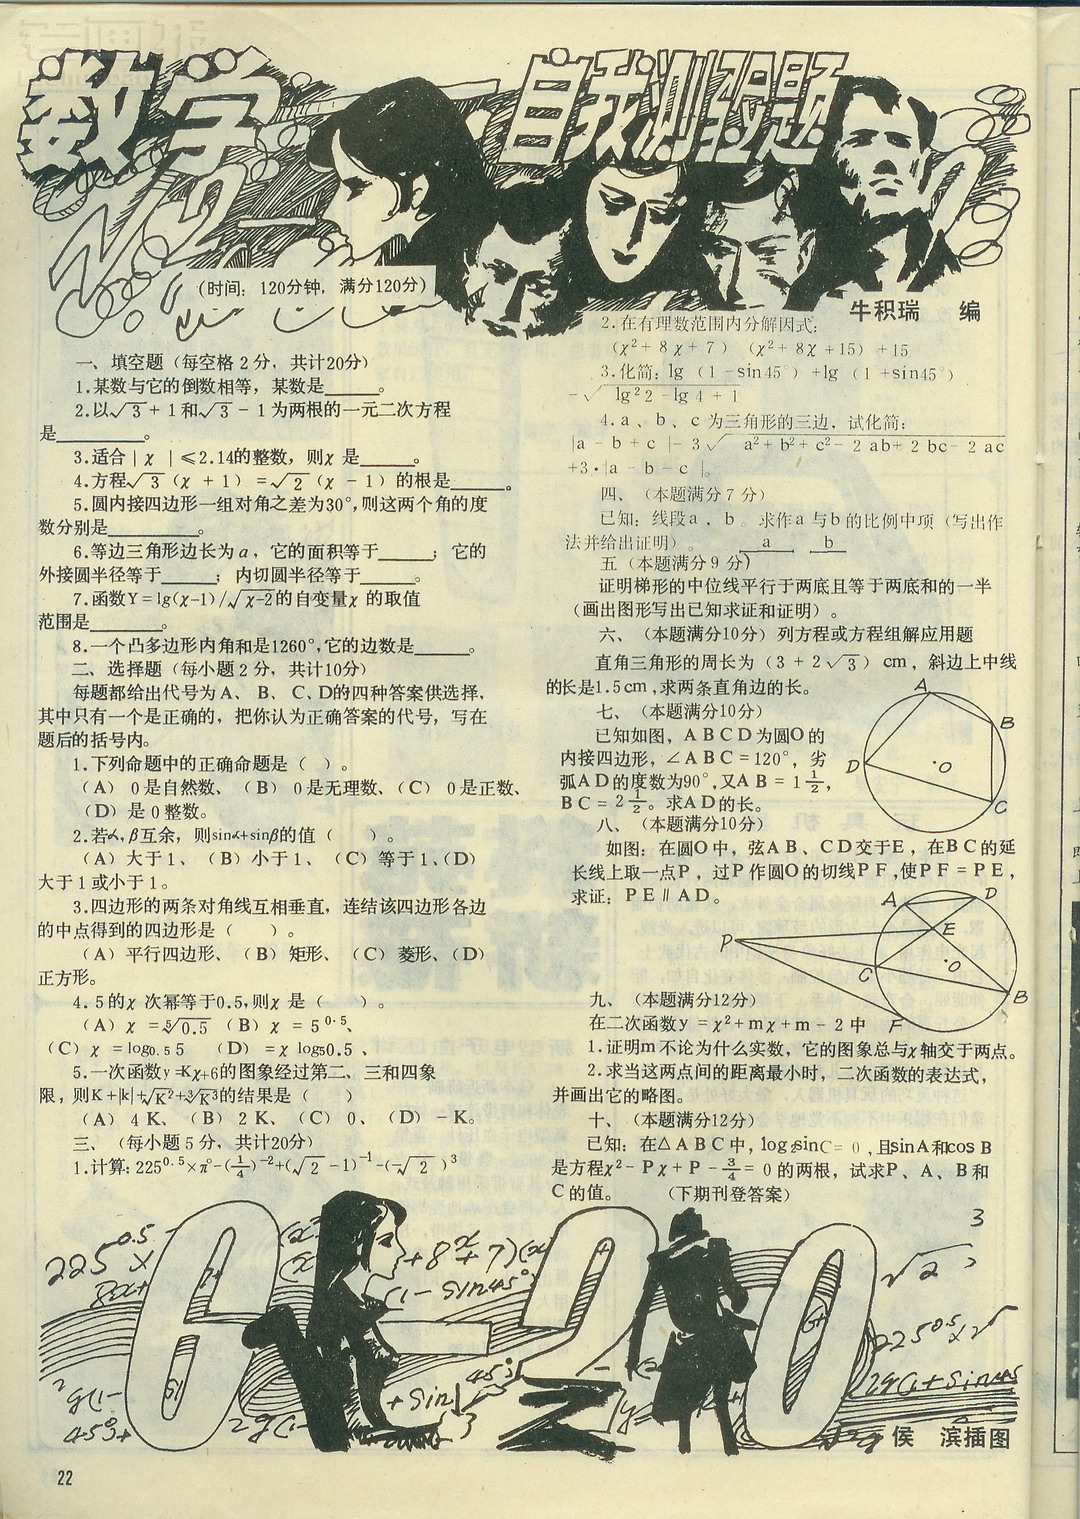 数学
自我测验题
(时间: 120分钟, 满分120分)
牛积瑞 编
一、填空题 (每空格2分, 共计20分)
1.某数与它的倒数相等, 某数是_____。
2.以√3+1和√3-1为两根的一元二次方程
是________。
3.适合|χ|≤2.14的整数, 则χ是_____。
4.方程√3(χ+1)=√2(χ-1)的根是_____。
5.圆内接四边形一组对角之差为30°,则这两个角的度
数分别是________。
6.等边三角形边长为a, 它的面积等于_____; 它的
外接圆半径等于_____; 内切圆半径等于_____。
7.函数Y=lg(χ-1)/√χ-2的自变量χ的取值
范围是_______。
8.一个凸多边形内角和是1260°,它的边数是_____。
二、选择题 (每小题2分, 共计10分)
每题都给出代号为A、B、C、D的四种答案供选择,
其中只有一个是正确的, 把你认为正确答案的代号, 写在
题后的括号内。
1.下列命题中的正确命题是( )。
(A) 0是自然数、(B) 0是无理数、(C) 0是正数、
(D) 是0整数。
2.若α,β互余, 则sinα+sinβ的值( )。
(A) 大于1、(B) 小于1、(C) 等于1、(D)
大于1或小于1。
3.四边形的两条对角线互相垂直, 连结该四边形各边
的中点得到的四边形是( )。
(A) 平行四边形、(B) 矩形、(C) 菱形、(D)
正方形。
4.5的χ次幂等于0.5,则χ是( )。
(A) χ=⁵√0.5 (B) χ=5^0.5、
(C) χ=log₀.₅5 (D) =χ log₅0.5、
5.一次函数y=Kχ+6的图象经过第二、三和四象
限, 则K+|k|+√K²+³√K³的结果是( )
(A) 4K、(B) 2K、(C) 0、(D) -K。
三、(每小题5分, 共计20分)
1.计算:225^0.5×π°-(1/4)^-2+(√2-1)^-1-(-√2)^3
2.在有理数范围内分解因式:
(χ²+8χ+7) (χ²+8χ+15)+15
3.化简: lg (1-sin45°)+lg (1+sin45°)
-√lg²2-lg4+1
4.a、b、c为三角形的三边, 试化简:
|a-b+c|-3√a²+b²+c²-2ab+2bc-2ac
+3·|a-b-c|。
四、(本题满分7分)
已知: 线段a、b。求作a与b的比例中项 (写出作
法并给出证明)。 a b
五 (本题满分9分)
证明梯形的中位线平行于两底且等于两底和的一半
(画出图形写出已知求证和证明)。
六、(本题满分10分) 列方程或方程组解应用题
直角三角形的周长为 (3+2√3) cm, 斜边上中线
的长是1.5cm,求两条直角边的长。
七、(本题满分10分)
已知如图, ABCD为圆O的
内接四边形, ∠ABC=120°, 劣
弧AD的度数为90°,又AB=1 1/2,
BC=2 1/2。求AD的长。
A
B
D
·O
C
八、(本题满分10分)
如图: 在圆O中, 弦AB、CD交于E, 在BC的延
长线上取一点P, 过P作圆O的切线PF,使PF=PE,
求证: PE∥AD。
A
D
E
P
C
·O
B
F
九、(本题满分12分)
在二次函数y=χ²+mχ+m-2中
1.证明m不论为什么实数, 它的图象总与χ轴交于两点。
2.求当这两点间的距离最小时, 二次函数的表达式,
并画出它的略图。
十、(本题满分12分)
已知: 在△ABC中, log₂sinC=0,且sinA和cosB
是方程χ²-Pχ+P-3/4=0的两根, 试求P、A、B和
C的值。 (下期刊登答案)
225^0.5×
+8x+7)(x
(1-sin45°
3
√2
225^0.5×√
lg(1+sin45
lg(1-
45°+
lg(1-
+sin
45°
侯 滨插图
22